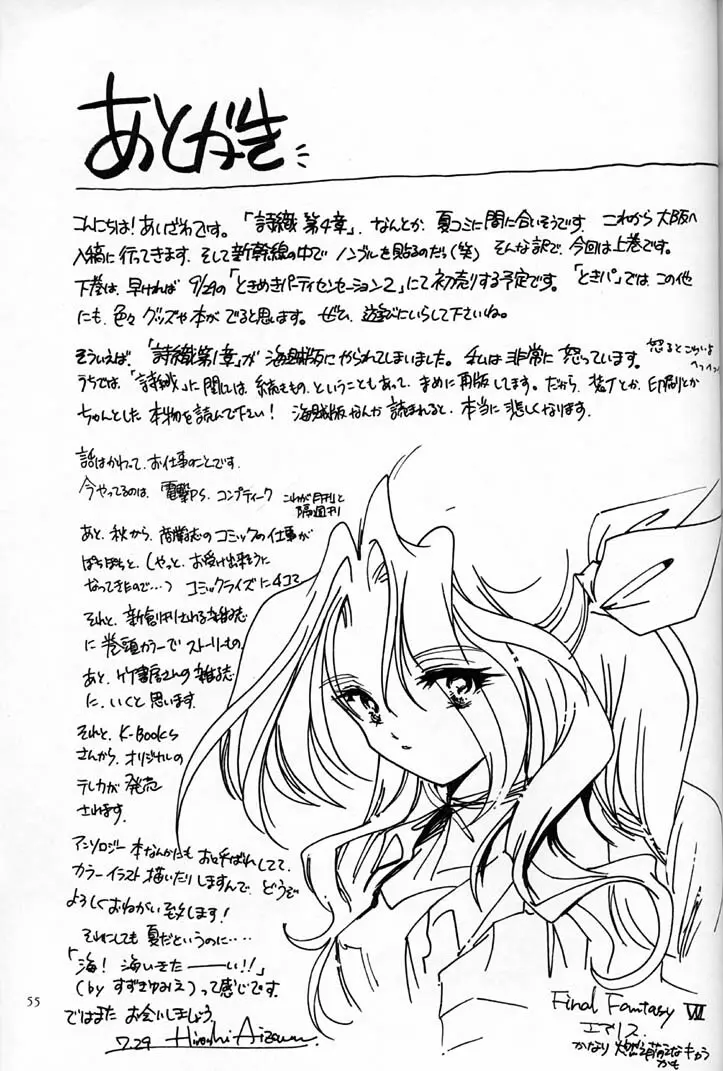 あとがき
こんにちは！あいざわです。「詩織 第4章」、なんとか、夏コミに間に合いそうです。これから大阪へ
入稿に行ってきます。そして新幹線の中でノンブルを貼るのだら(笑) そんな訳で、今回は上巻です。
下巻は、早ければ 9/29の「ときめきパーティセンセーション2」にて初売りする予定です。「ときパ」では、この他
にも、色々グッズや本がでると思います。ぜひ、遊びにいらして下さいね。
そういえば、「詩織第1章」が海賊版にやられてしまいました。私は非常に怒っています。
怒るとこわいよ
へっへっへっ
うちでは、「詩織」に関しては、続きもの、ということもあって、まめに再版します。だから、装丁とか、印刷とか
ちゃんとした本物を読んで下さい！ 海賊版なんか読まれると、本当に悲しくなります。
話はかわって、お仕事のことです。
今やってるのは、電撃PS、コンプティーク
これが月刊と
隔週刊
あと、秋から、商業誌のコミックの仕事が
ぽちぽちと、(やっと、お受け出来そうに
なってきたので…) コミックライズに4コマ
それと、新創刊される雑誌
に巻頭カラーでストーリーもの
あと、竹書房さんの雑誌
に、いくと思います。
それと、K-Books
さんから、オリジナルの
テレカが発売
されます。
アンソロジー本なんかにもお呼ばれしてて、
カラーイラスト描いたりしますんで、どうぞ
よろしくおねがい致します！
それにしても夏だというのに‥‥
「海！海いきたーーい!!」
(by すずきゆみえ)って感じです。
ではまたお会いしましょう。
7.29 Hiroshi Aizawa.
Final Fantasy VII
エアリス.
かなり 萌えなキャラ
かも
55